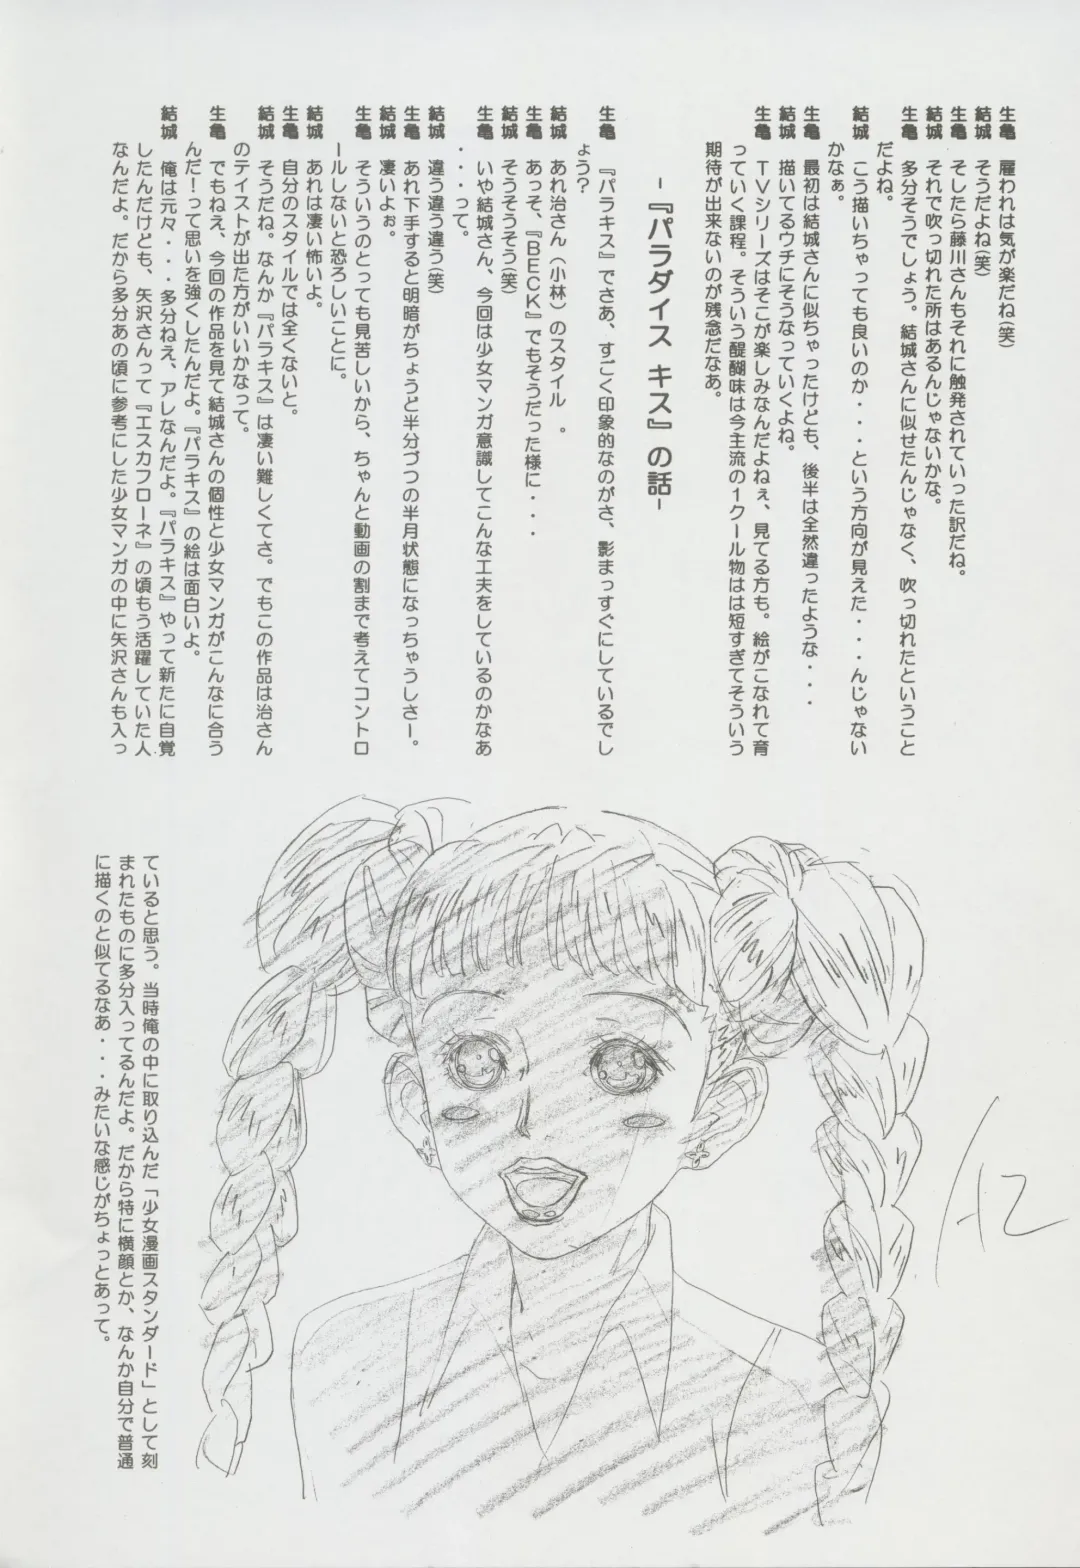 生亀　雇われは気が楽だね(笑)
結城　そうだよね(笑)
生亀　そしたら藤川さんもそれに触発されていった訳だね。
結城　それで吹っ切れた所はあるんじゃないかな。
生亀　多分そうでしょう。結城さんに似せたんじゃなく、吹っ切れたということ
だよね。
結城　こう描いちゃっても良いのか・・・という方向が見えた・・・んじゃない
かなぁ。
生亀　最初は結城さんに似ちゃったけども、後半は全然違ったような・・・
結城　描いてるウチにそうなっていくよね。
生亀　TVシリーズはそこが楽しみなんだよねぇ、見てる方も。絵がこなれて育
っていく課程。そういう醍醐味は今主流の1クール物はは短すぎてそういう
期待が出来ないのが残念だなあ。
-『パラダイス キス』の話-
生亀　『パラキス』でさあ、すごく印象的なのがさ、影まっすぐにしているでし
ょう?
結城　あれ治さん(小林)のスタイル　。
生亀　あっそ、『BECK』でもそうだった様に・・・
結城　そうそうそう(笑)
生亀　いや結城さん、今回は少女マンガ意識してこんな工夫をしているのかなあ
・・・って。
結城　違う違う違う(笑)
生亀　あれ下手すると明暗がちょうど半分づつの半月状態になっちゃうしさー。
結城　凄いよぉ。
生亀　そういうのとっても見苦しいから、ちゃんと動画の割まで考えてコントロ
ールしないと恐ろしいことに。
結城　あれは凄い怖いよ。
生亀　自分のスタイルでは全くないと。
結城　そうだね。なんか『パラキス』は凄い難しくてさ。でもこの作品は治さん
のテイストが出た方がいいかなって。
生亀　でもねえ、今回の作品を見て結城さんの個性と少女マンガがこんなに合う
んだ!って思いを強くしたんだよ。『パラキス』の絵は面白いよ。
結城　俺は元々・・・多分ねえ、アレなんだよ。『パラキス』やって新たに自覚
したんだけども、矢沢さんって『エスカフローネ』の頃もう活躍していた人
なんだよ。だから多分あの頃に参考にした少女マンガの中に矢沢さんも入っ
ていると思う。当時俺の中に取り込んだ「少女漫画スタンダード」として刻
まれたものに多分入ってるんだよ。だから特に横顔とか、なんか自分で普通
に描くのと似てるなあ・・・みたいな感じがちょっとあって。